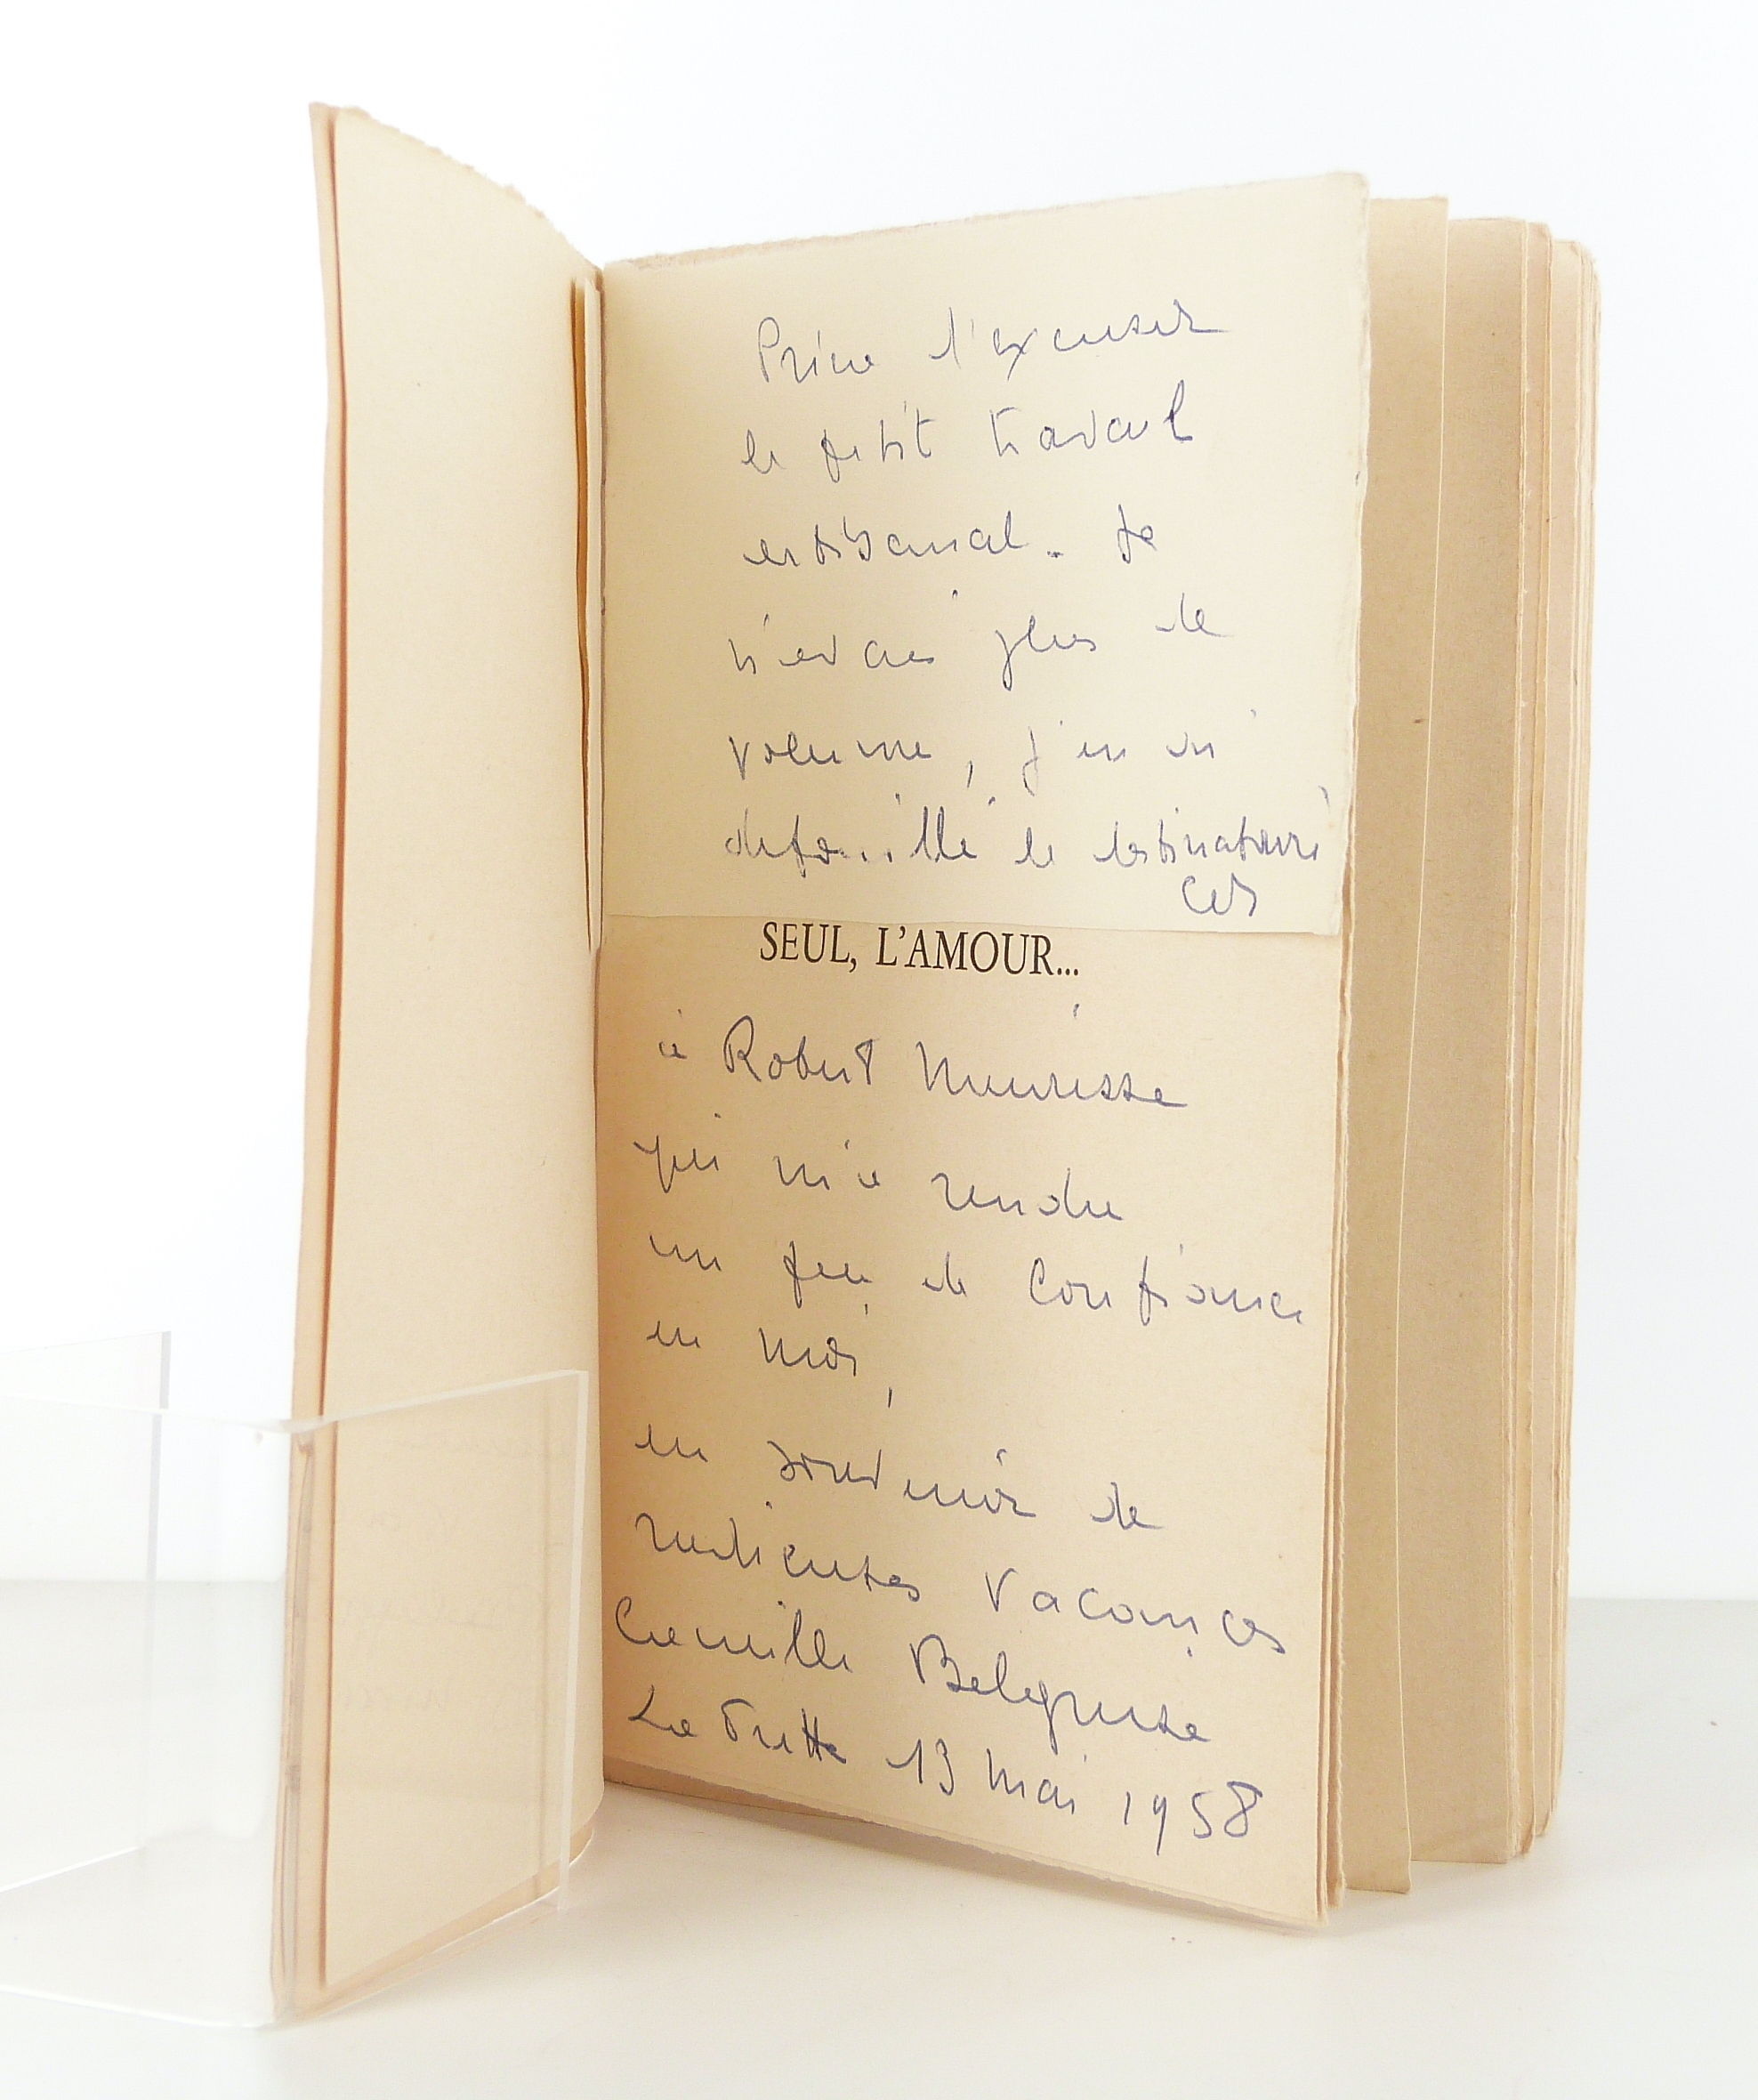 Prière d'excuser
le petit travail
artisanal. Je
n'avais plus de
volume, j'en ai
dépouillé le destinataire
CB
SEUL, L'AMOUR...
à Robert Meurisse
qui m'a rendu
un peu de confiance
en moi,
en souvenir de
radieuses vacances
Camille Belguise
La Frette 13 mai 1958